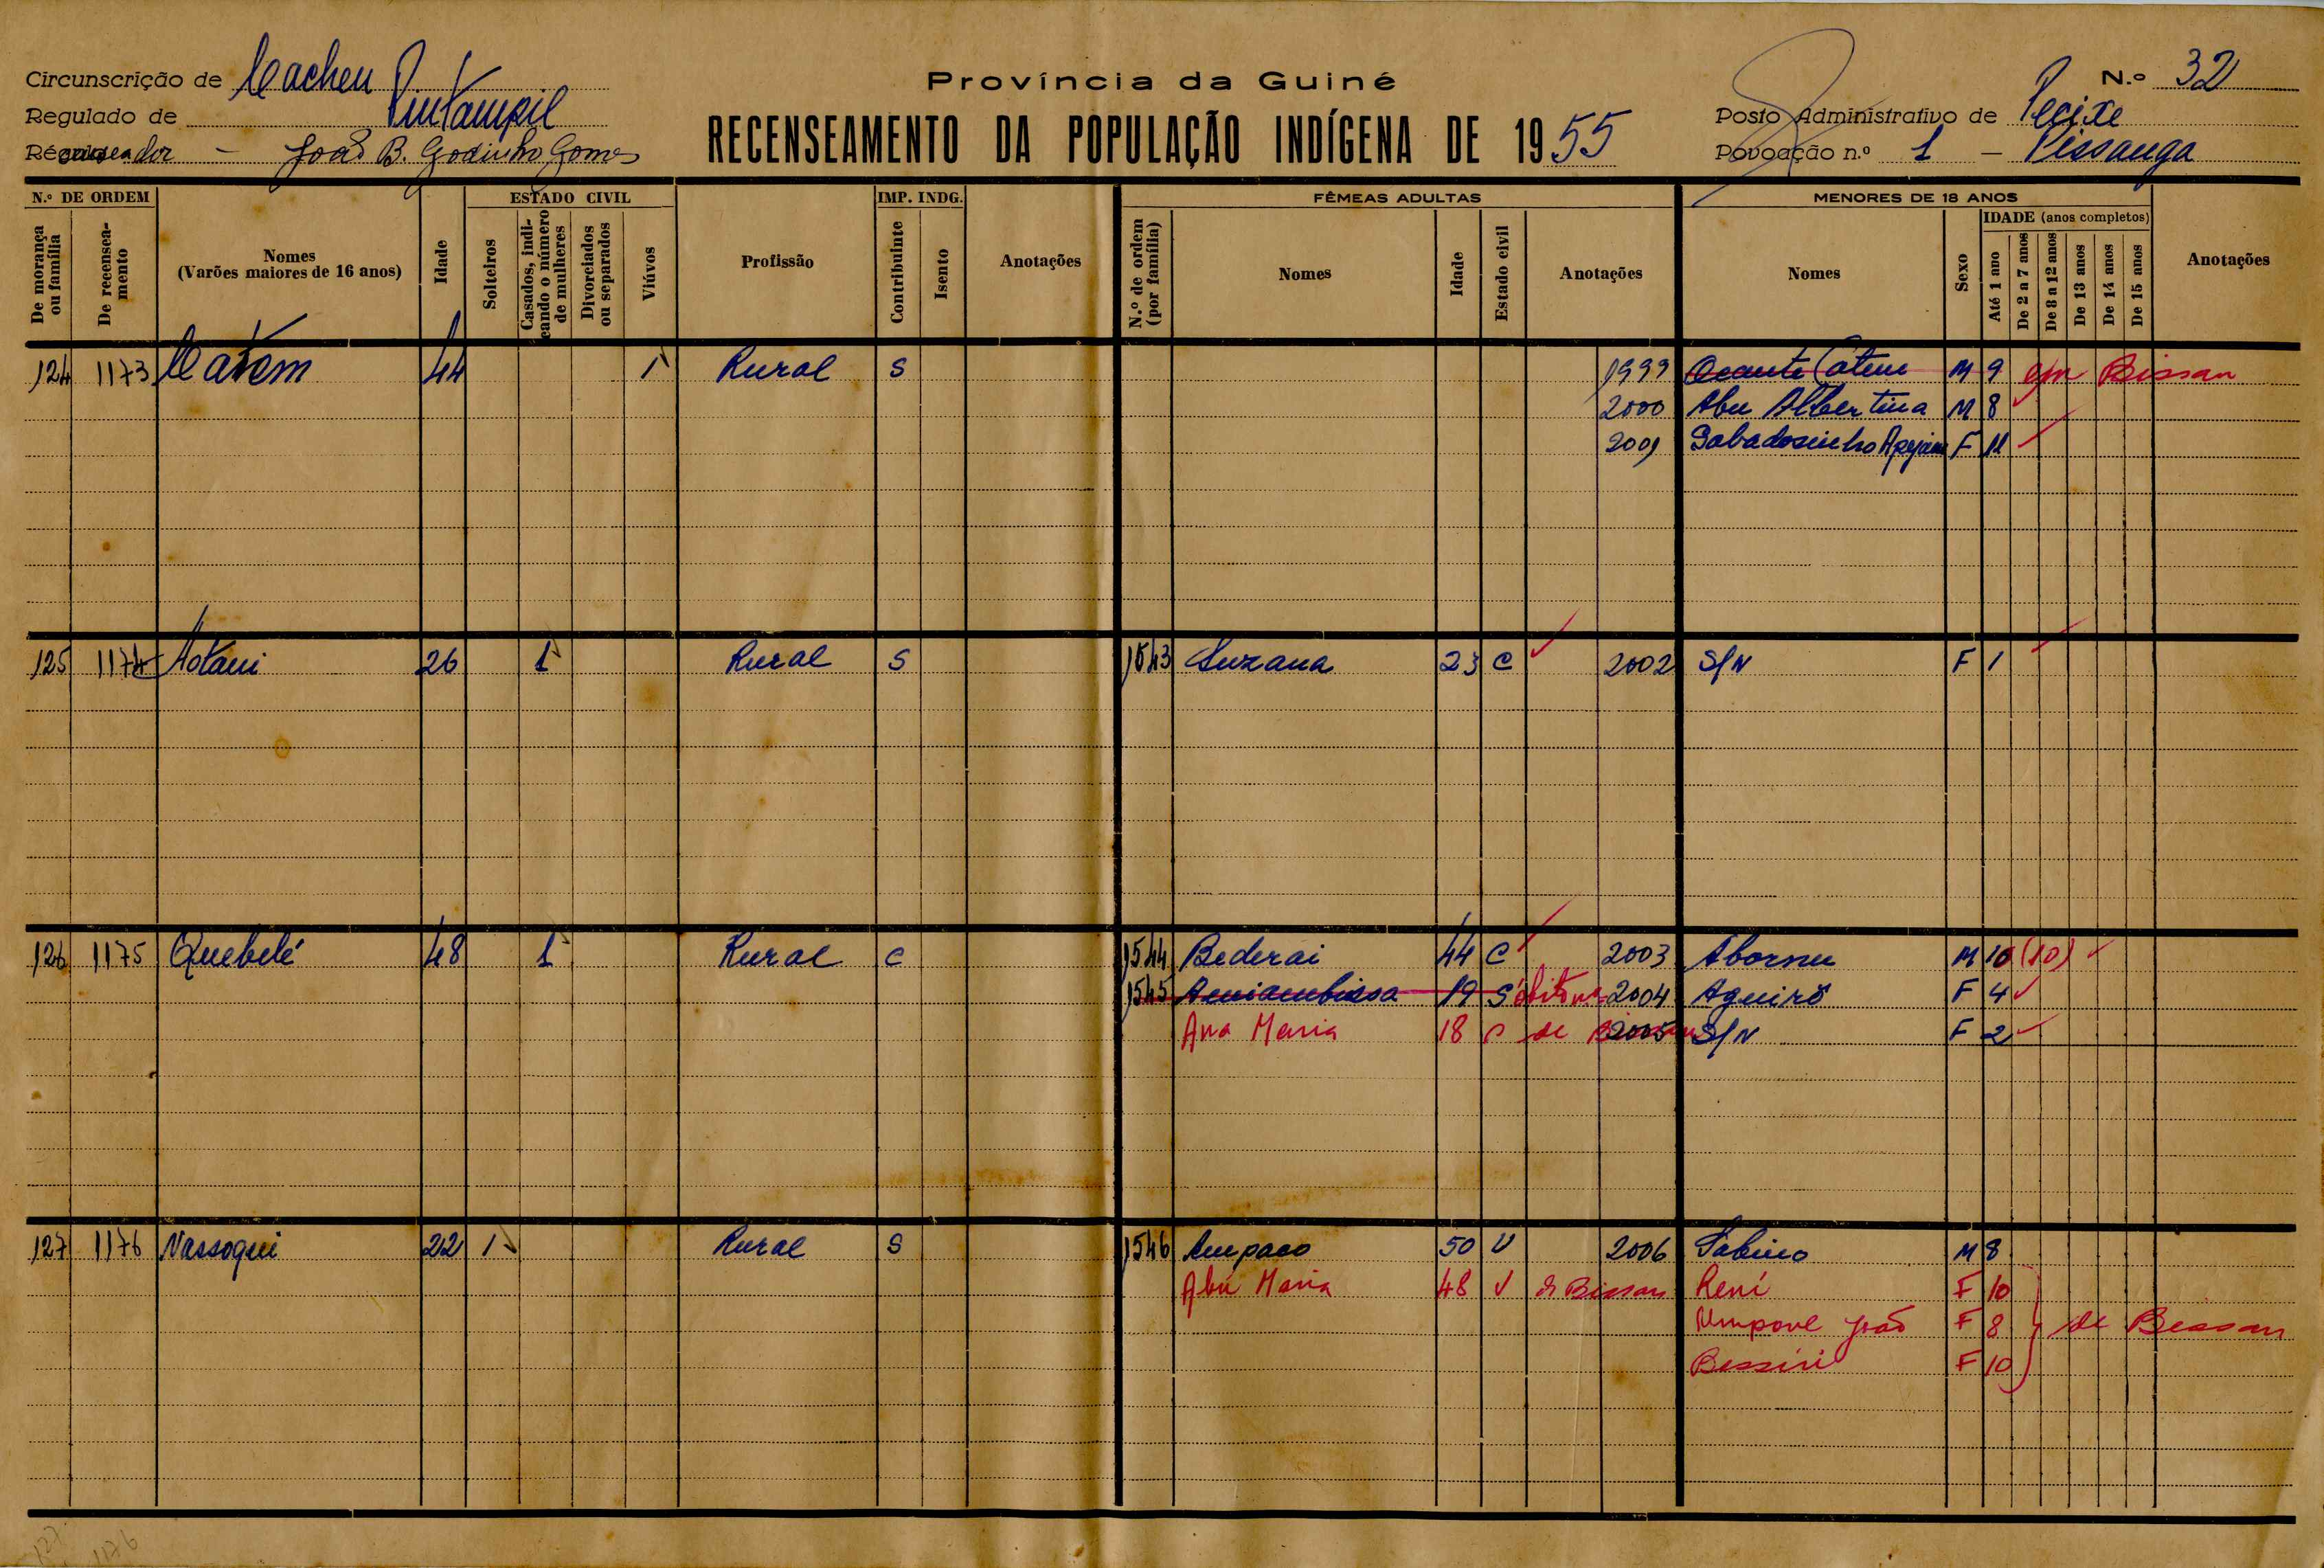 Província da Guiné
RECENSEAMENTO DA POPULAÇÃO INDÍGENA DE 1955
Circunscrição de Cacheu
Regulado de Pintampil
Recenseador - João B. Godinho Gomes
N.º 32
Posto Administrativo de Pecixe
Povoação n.º 1 - Pissanga
N.º DE ORDEM
De morança ou família
De recenseamento
Nomes (Varões maiores de 16 anos)
Idade
ESTADO CIVIL
Solteiros
Casados, indicando o número de mulheres
Divorciados ou separados
Viúvos
Profissão
IMP. INDG.
Contribuinte
Isento
Anotações
FÊMEAS ADULTAS
N.º de ordem (por família)
Nomes
Idade
Estado civil
Anotações
MENORES DE 18 ANOS
Nomes
Sexo
IDADE (anos completos)
Até 1 ano
De 2 a 7 anos
De 8 a 12 anos
De 13 anos
De 14 anos
De 15 anos
Anotações
124 1173 Catem 44 1 Rural S 1999 Ocante Cátem M 9 em Bissau
2000 Abu Albertina M 8
2001 Sabadosinho F 11
125 1174 26 1 Rural S 1543 Suzana 23 C 2002 S/N F 1
126 1175 Quebelé 48 1 Rural C 1544 Bederai 44 C 2003 Abornu M 10 (10)
1545 19 S óbito 2004 Aguiró F 4
Ana Maria 18 S de Bissau 2005 S/N F 2
127 1176 Nassoqui 22 1 Rural S 1546 Ampaco 50 V 2006 Sabino M 8
Abú Maria 48 V de Bissau Rení F 10
Umpone João F 8 de Bissau
Bessiri F 10
127
1176